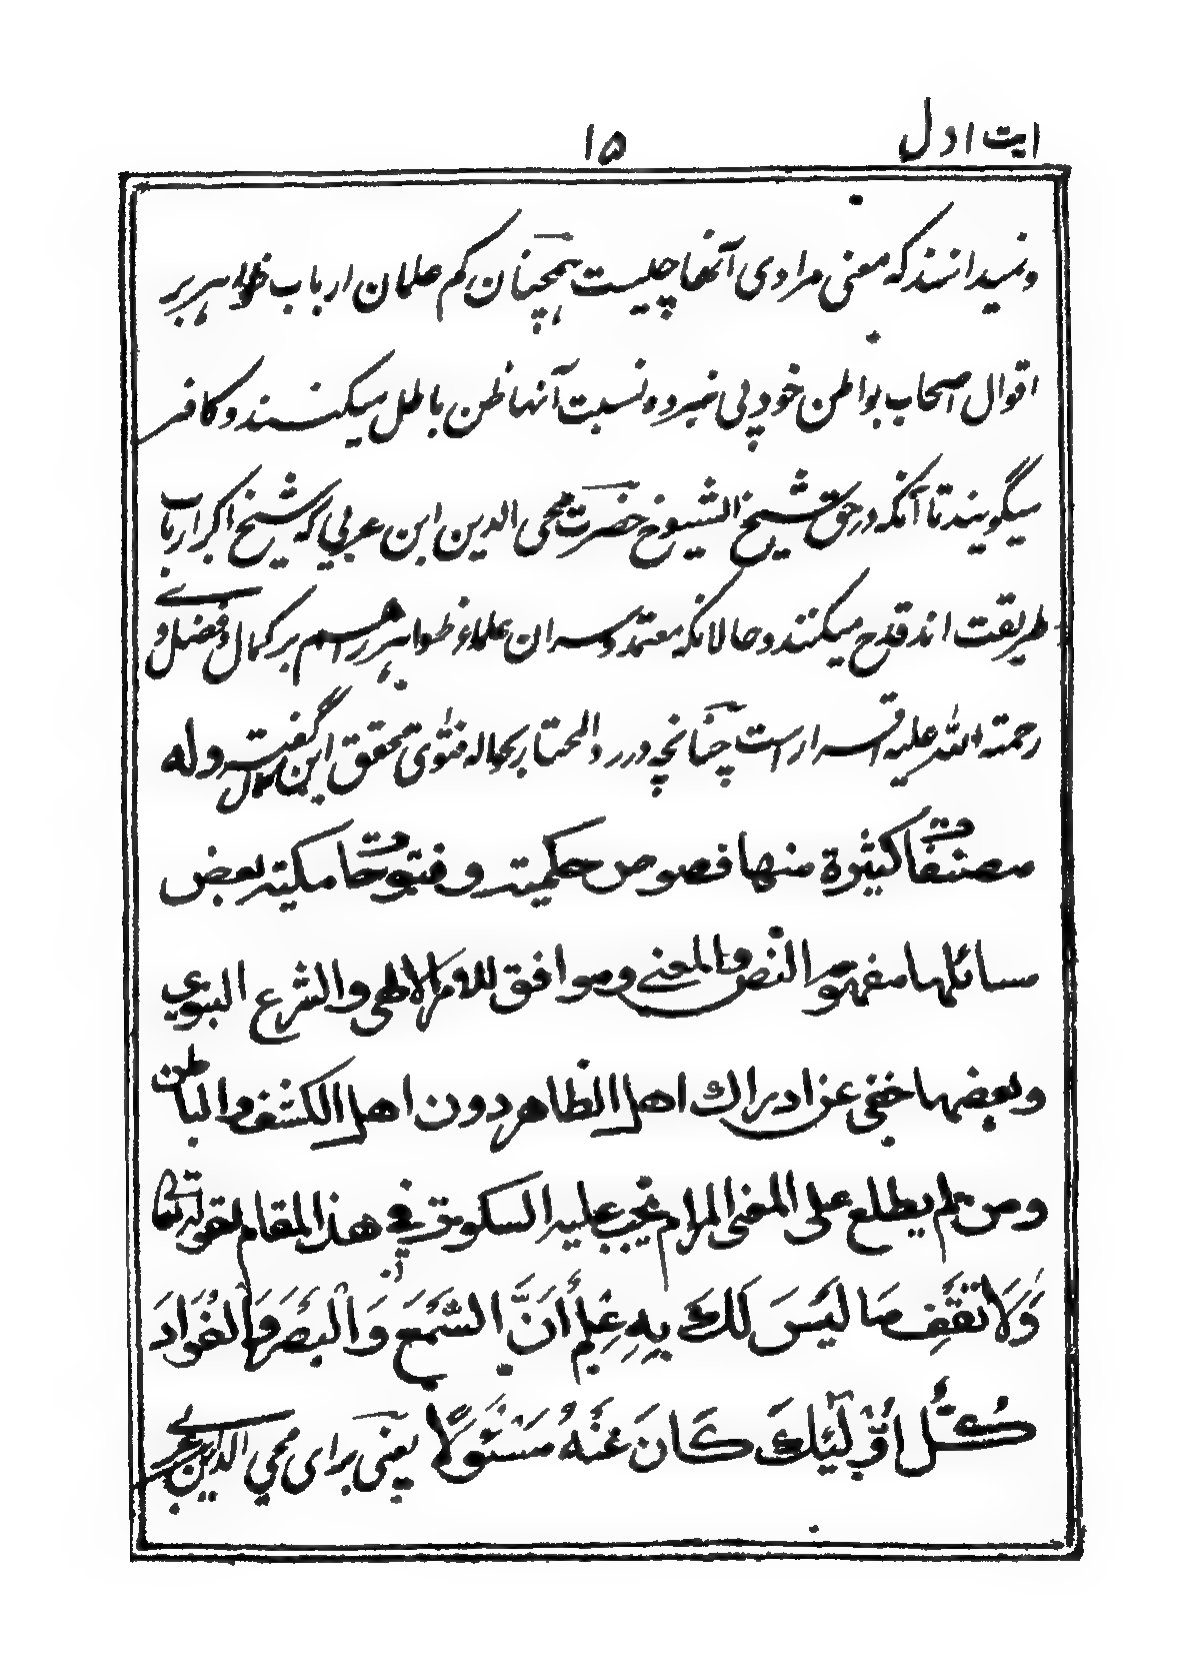 ایت اول ۱۵
ونمیدانند که معنی مرادی آنها چیست همچنان کم علمان ارباب ظواهر بر
اقوال اصحاب بواطن خود پی نبرده نسبت آنها ظن باطل میکنند و کافر
میگویند تا آنکه در حق شیخ الشیوخ حضرت محی الدین ابن عربی که شیخ اکبر ارباب
طریقت اند قدح میکنند و حالانکه معتمد و سران علماء ظواهر هم بر کمال و فضل وے
رحمته الله علیه اقرار است چنانچه در رد المحتار بحواله فتوی محقق ابن کمال گفته وله
مصنفات كثيرة منها فصوص حكمية وفتوحات مكية بعض
مسائلها مفهوم النص والمعنى وموافق للامر الالهي والشرع النبوي
وبعضها خفي عن ادراك اهل الظاهر دون اهل الكشف والباطن
ومن لم يطلع على المعنى المرام يجب عليه السكوت في هذا المقام لقوله تعالى
وَلَا تَقْفُ مَا لَيْسَ لَكَ بِهِ عِلْمٌ اَنَّ السَّمْعَ وَالْبَصَرَ وَالْفُوَادَ
كُلُّ اُوْلٰئِكَ كَانَ عَنْهُ مَسْئُولًا یعنی برای محی الدین عربے